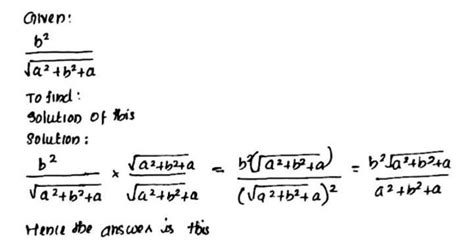 Given:
b²
√a²+b²+a
To find:
Solution of this
Solution:
b² / √a²+b²+a × √a²+b²+a / √a²+b²+a = b²(√a²+b²+a) / (√a²+b²+a)² = b²√a²+b²+a / a²+b²+a
Hence the answer is this